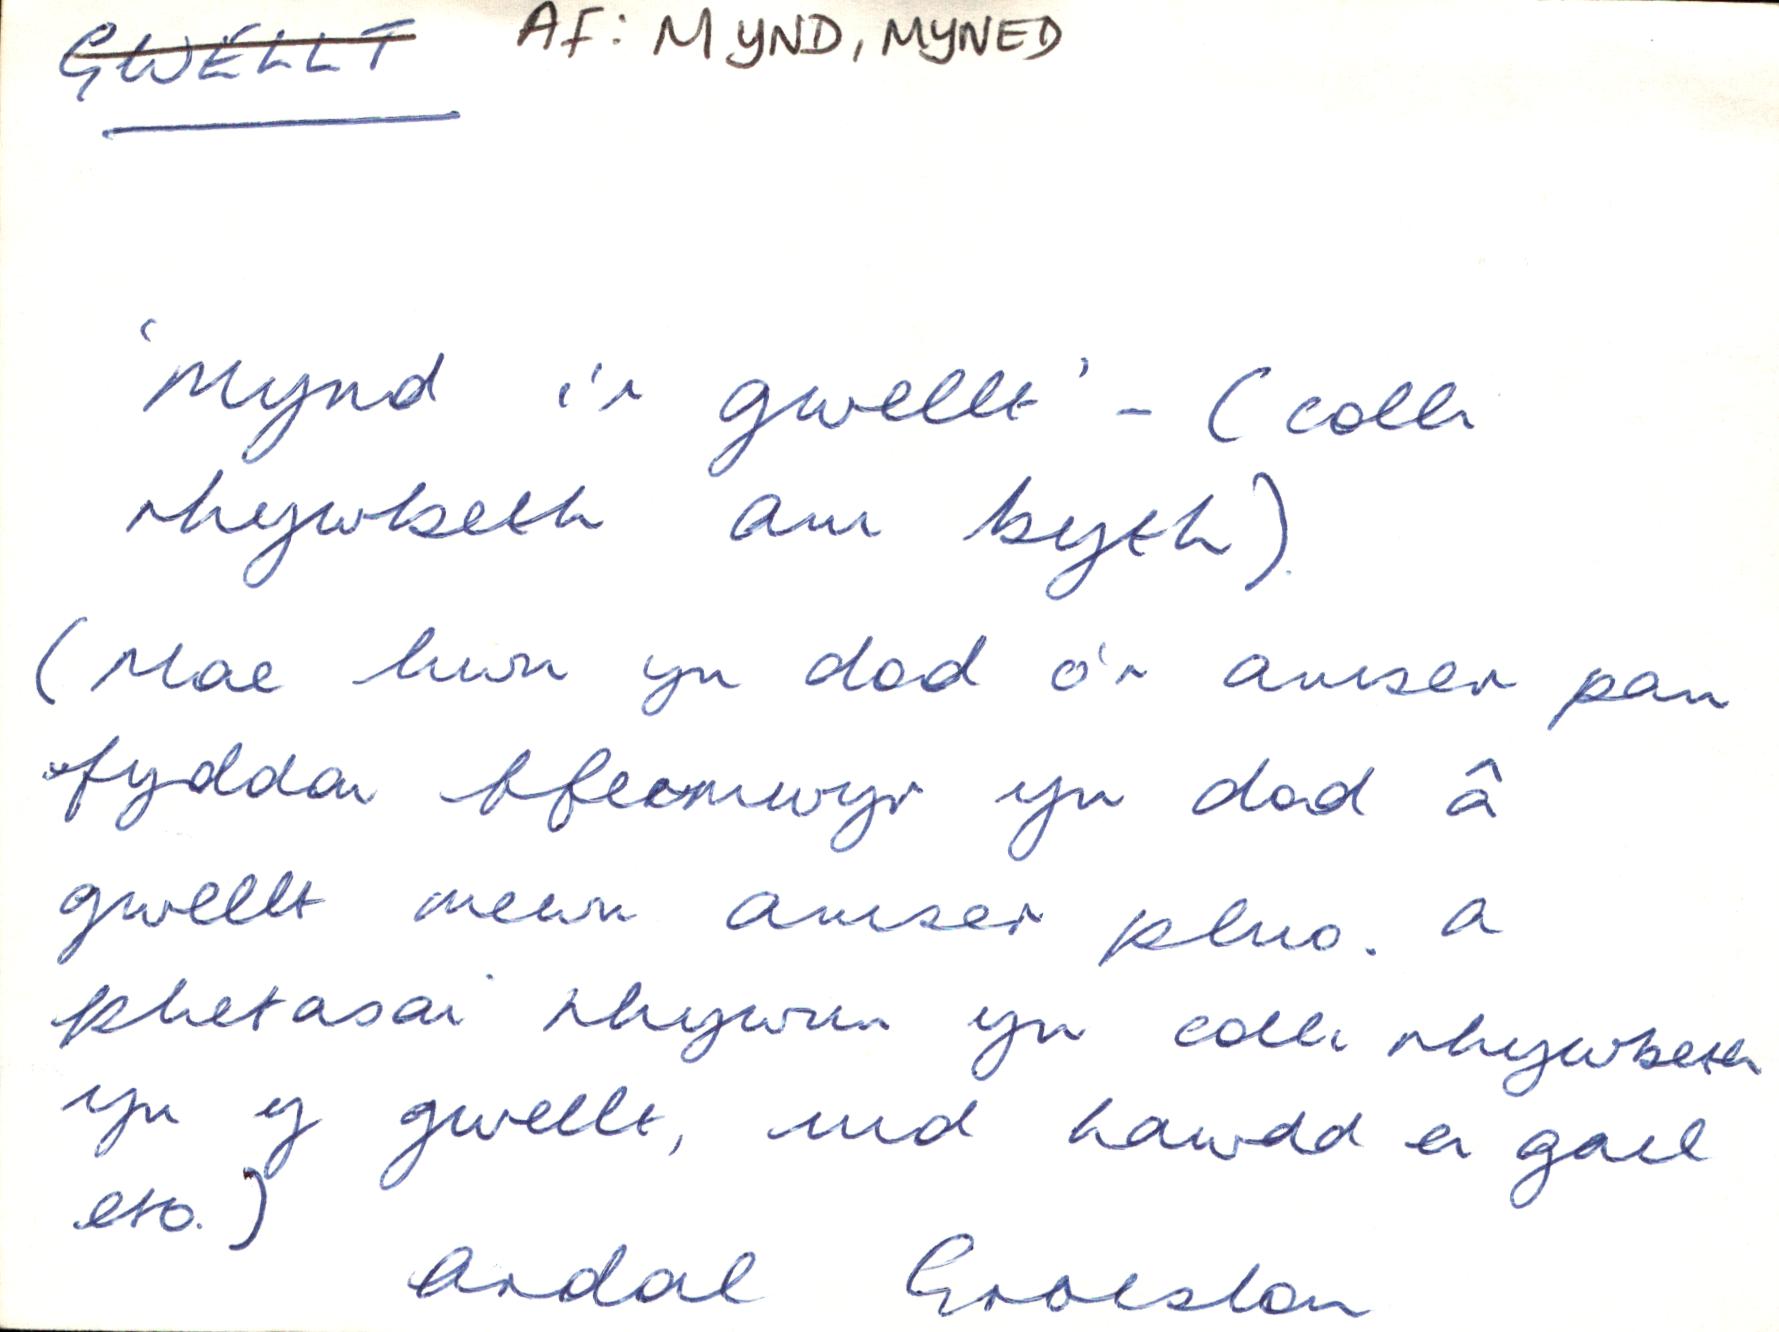 GWELLT AF: MYND, MYNED
'Mynd i'r gwellt' - (colli
rhywbeth am byth).
(Mae hwn yn dod o'r amser pan
fyddai ffermwyr yn dod â
gwellt mewn amser pluo. a
phetasai rhywun yn colli rhywbeth
yn y gwellt, nid hawdd ei gael
eto.)
Ardal Groeslon